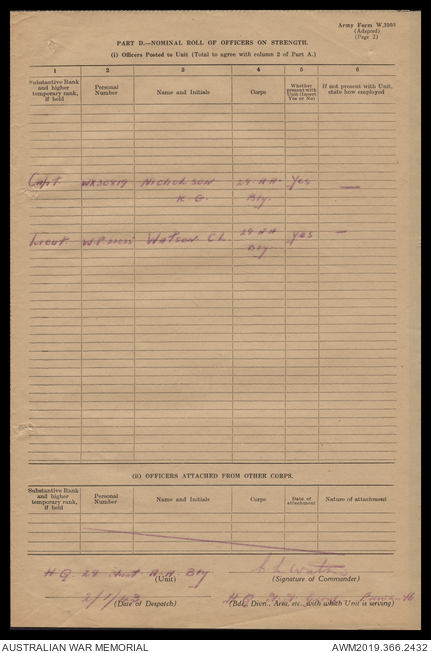 Army Form W.3008
(Adapted)
(Page 2)
PART D.—NOMINAL ROLL OF OFFICERS ON STRENGTH.
(i) Officers Posted to Unit (Total to agree with column 2 of Part A.)
1 2 3 4 5 6
Substantive Rank and higher temporary rank, if held
Personal Number
Name and Initials
Corps
Whether present with Unit (Insert Yes or No)
If not present with Unit, state how employed
Capt Nicholson 28 A.A. Yes —
K G. Bty.
Lieut Watson C L. 28 AA yes —
Bty.
(ii) OFFICERS ATTACHED FROM OTHER CORPS.
Substantive Rank and higher temporary rank, if held
Personal Number
Name and Initials
Corps
Date of attachment
Nature of attachment
H Q 28 A.A. Bty
(Unit)
C L Watson
(Signature of Commander)
2/1/43
(Date of Despatch)
(Bde., Divn., Area, etc., with which Unit is serving)
AUSTRALIAN WAR MEMORIAL
AWM2019.366.2432